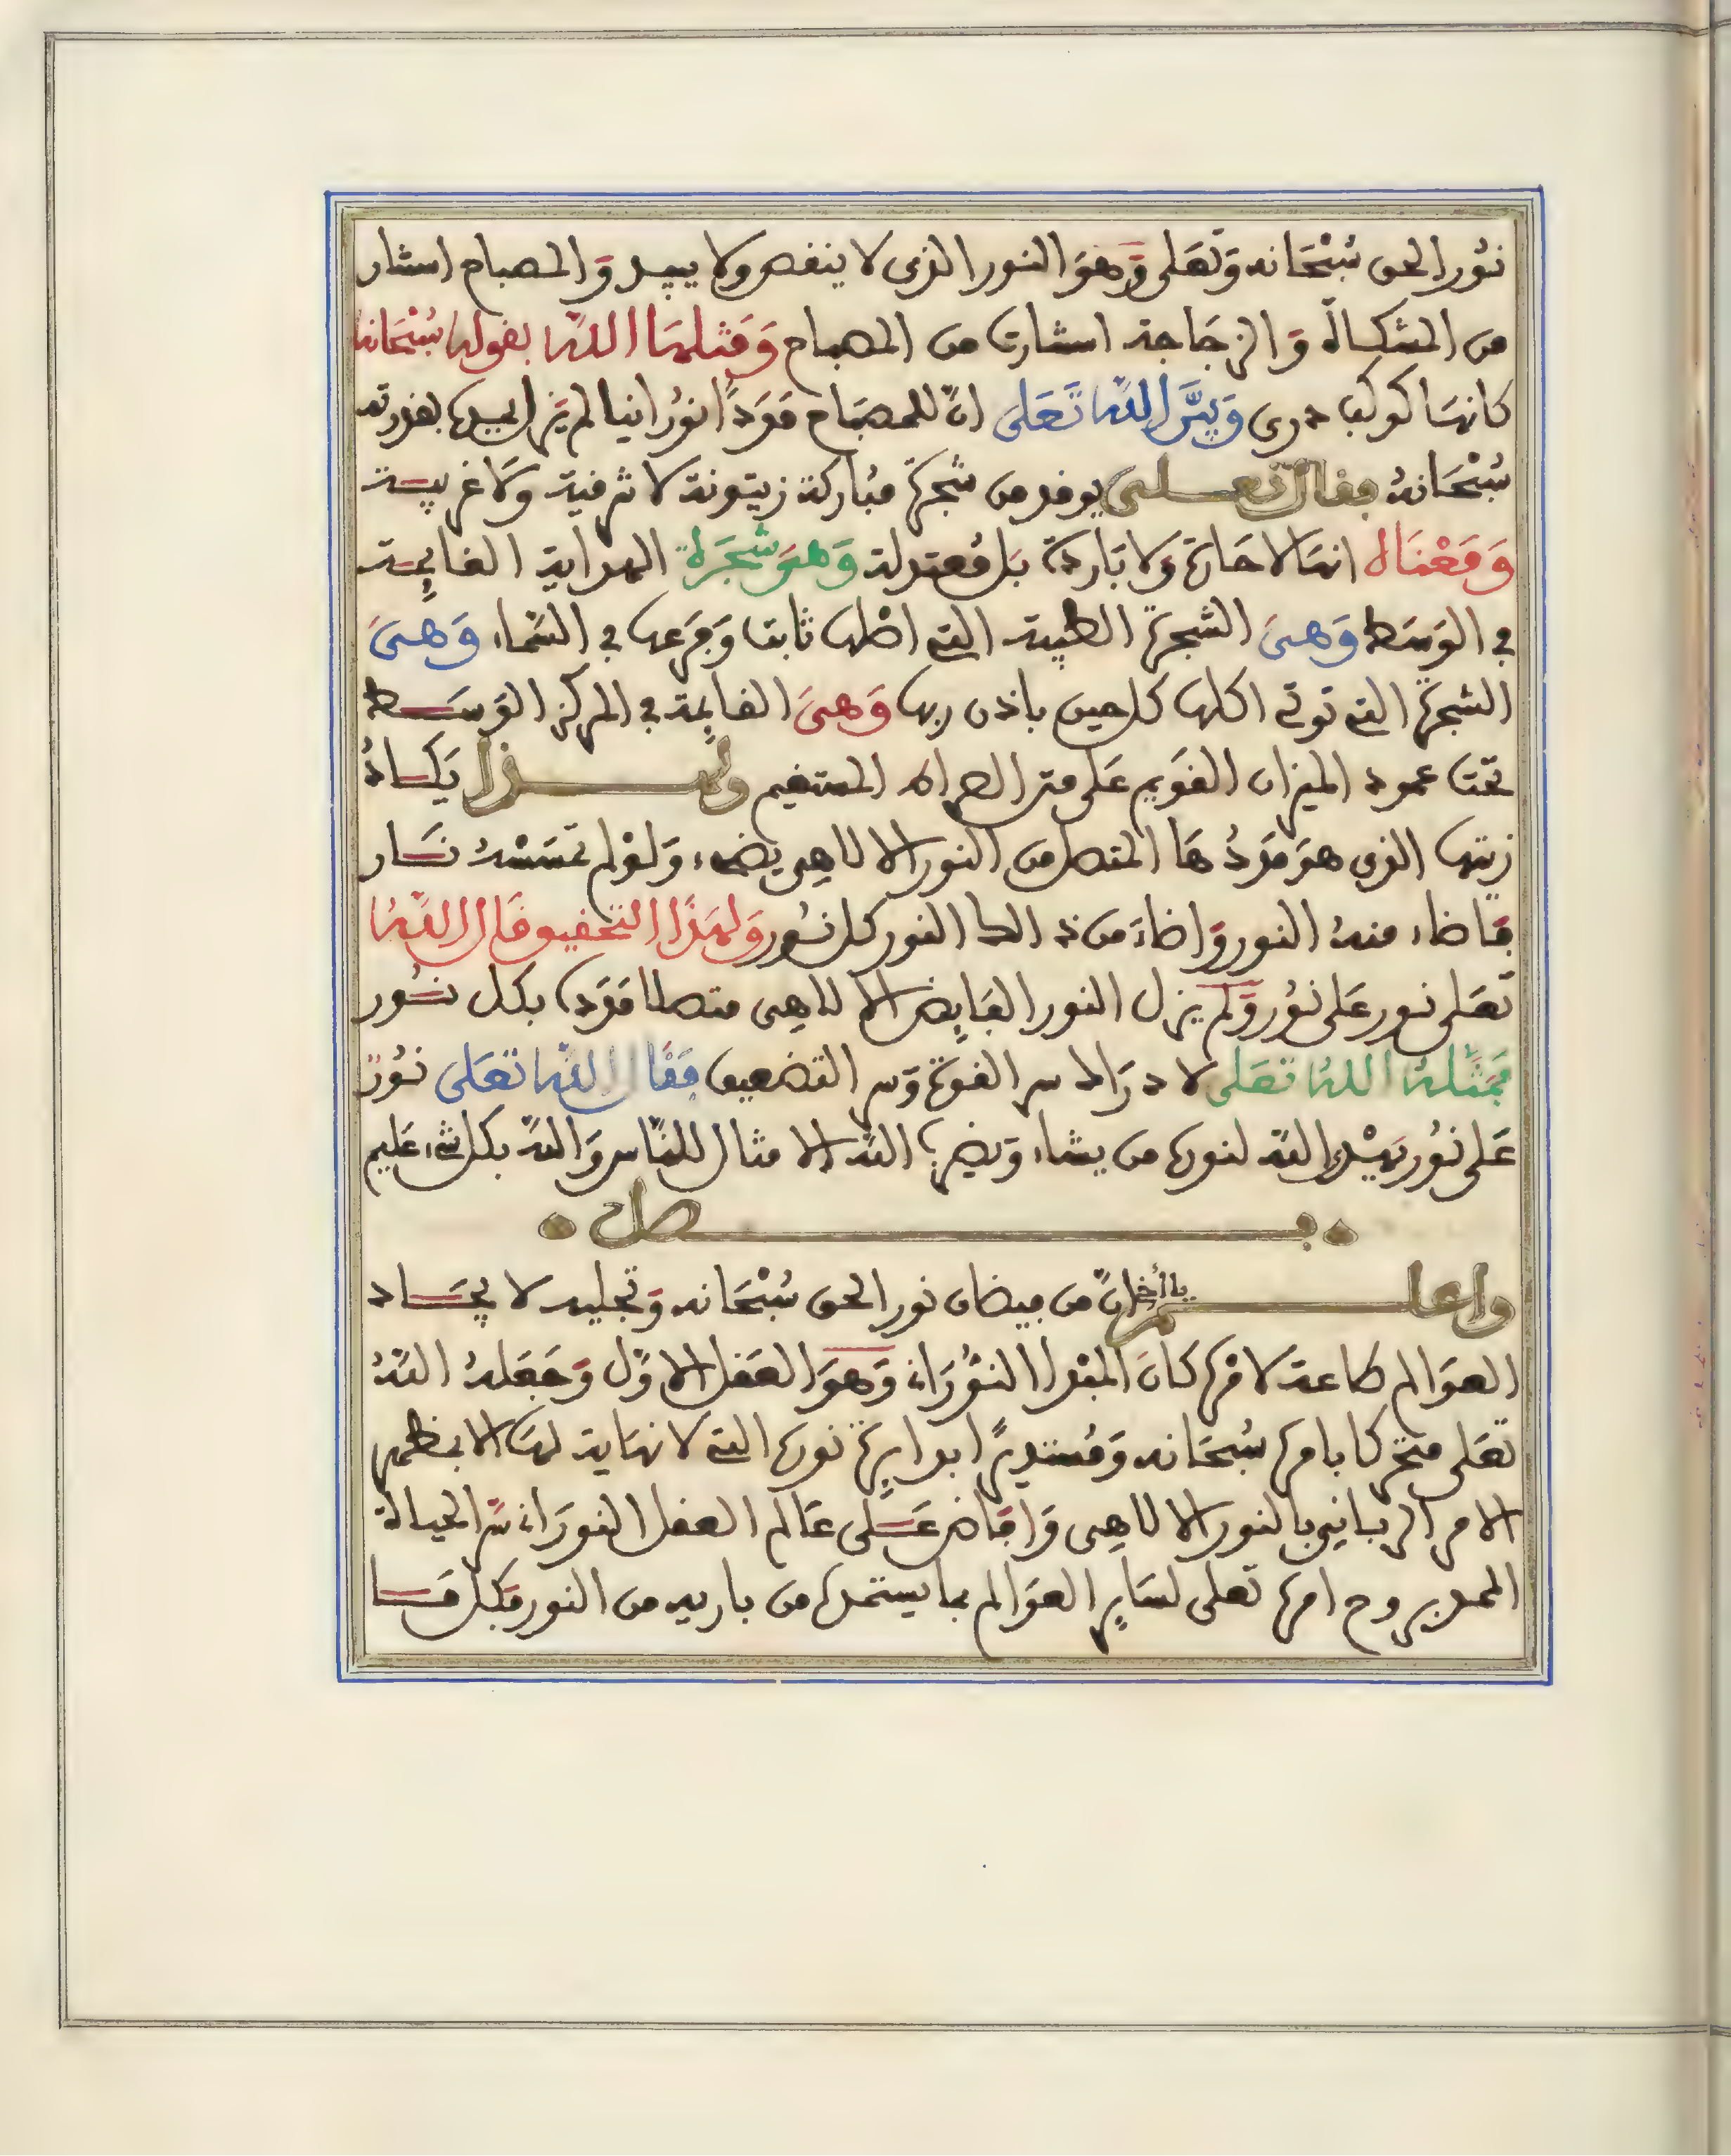 نُور الحق سُبْحَانه وَتَعَلى وَهوَ النور الذي لا ينقص ولا يبيد وَالمصباح استنار
من المشكاة وَالزجَاجة استنارت من المصباح وَمَثلهَا اللهُ بقوله سُبْحَانهُ
كانهَا كوكب دري وَبيَّن اللهُ تَعَلى انّ للمصبَاح مَوَدّاً نوُرانيا لم يَزل يمده بقدرته
سُبْحَانهُ فقال تعلى يوقد من شجرة مُباركة زيتونة لا شرقية وَلا غربية
وَمَعْنَاه انهَا لا حَارة وَلا بَاردة بَل مُعتدلة وَهىَ شجَرَة الهداية القايمة
في الوَسَط وَهىَ الشجرة الطيبة التي اصْلها ثابت وَفرَعها في السَماء وَهىَ
الشجرة التي توتي اكلها كل حين باذن ربها وَهىَ القايمة في المركز الوَسَط
تحت عمود الميزان القويم عَلى متن الصراط المستقيم ولهذا يَكادُ
زيتها الذي هوَ مَوَدُهَا المتصل من النور الالاهِي يضيء وَلوْ لم تمسَسْهُ نَار
فاضاء منهُ النور وَاضاءَ من ذالك النور كل نُور وَلهَذَا التحقيق قَال اللهُ
تعَلى نور عَلى نوُر وَلم يزل النور الفَايض الالاهِى متصلا مَوَده بكل نُور
فَمَثلهُ اللهُ تعَلى لادرَاك سر القوة وَسر التضعيف فَقَال اللهُ تعَلى نُورٌ
عَلى نوُر يَهْدِي الله لنوره من يشاء وَيضرب الله الامثال للنَّاس وَالله بكل شيء عَليم
فصل
واعلم يا أخي انّ من فيضان نور الحق سُبْحَانه وَتجليه لايجَاد
العوَالم طاعة لامره كانَ المبْدا النُّورَاني وَهوَ العَقل الاوّل وَجَعَلهُ اللهُ
تعَلى متحركا بامره سُبحَانه وَمُستديراً بدايرة نوره التي لا نهَاية لهَا الا بمظهر
الامر الرباني بالنور الالاهِى وَافَاض عَلى عَالم العقل النورَاني سرّ الحياة
الممد بروح امره تعلى لسَاير العوَالم بما يستمده من باريه من النور فكل مَا